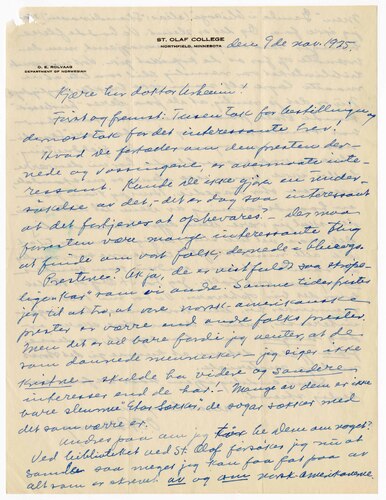 ST. OLAF COLLEGE
NORTHFIELD, MINNESOTA
den 9de nov. 1925.
O. E. ROLVAAG
DEPARTMENT OF NORWEGIAN
Kjere hr doktor !
Først og fremst: Tusen tak for bestillingen og
dernæst tak for det interessante brev.
Hvad De fortæller om den presten der-
nede og vossingene, er overmaate inte-
ressant. Kunde De ikke gjøre en under-
søkelse av det, - det er dog saa interessant
at det fortjener at opbevares. - Der maa
forresten være mange interessante ting
at finde om vort folk dernede i
Prestene? Ak ja, de er vist fuldt saa
som vi andre. Somme tider frister
jeg til at tro, at vore norsk-amerikanske
prester er værre end andre folks prester.
Men det er vel bare fordi jeg venter, at de
som dannede mennesker - jeg siger ikke
kristne - skulde ha videre og sandere
interesser end de har. - Mange av dem er ikke
bare slemme "etter sokker," de sogar sokker med
det som værre er.
Andres paa om jeg tør be Dem om noget?
Ved biblioteket ved St. Olaf forsøker jeg nu at
samle saa meget jeg kan faa fat paa av
alt som er skrevet av og om norsk-amerikanerne.